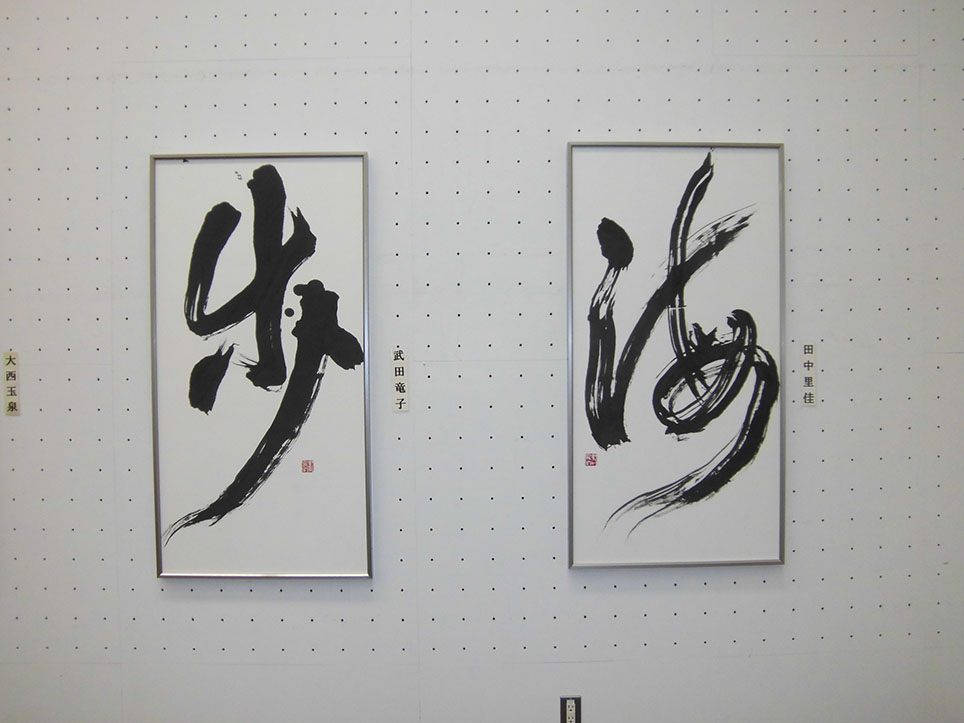 歩
武田竜子
海
田中里佳
大西玉泉